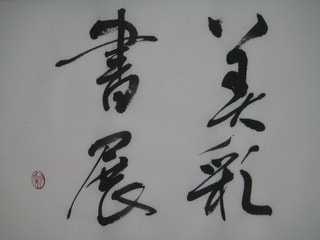 美彩
書展